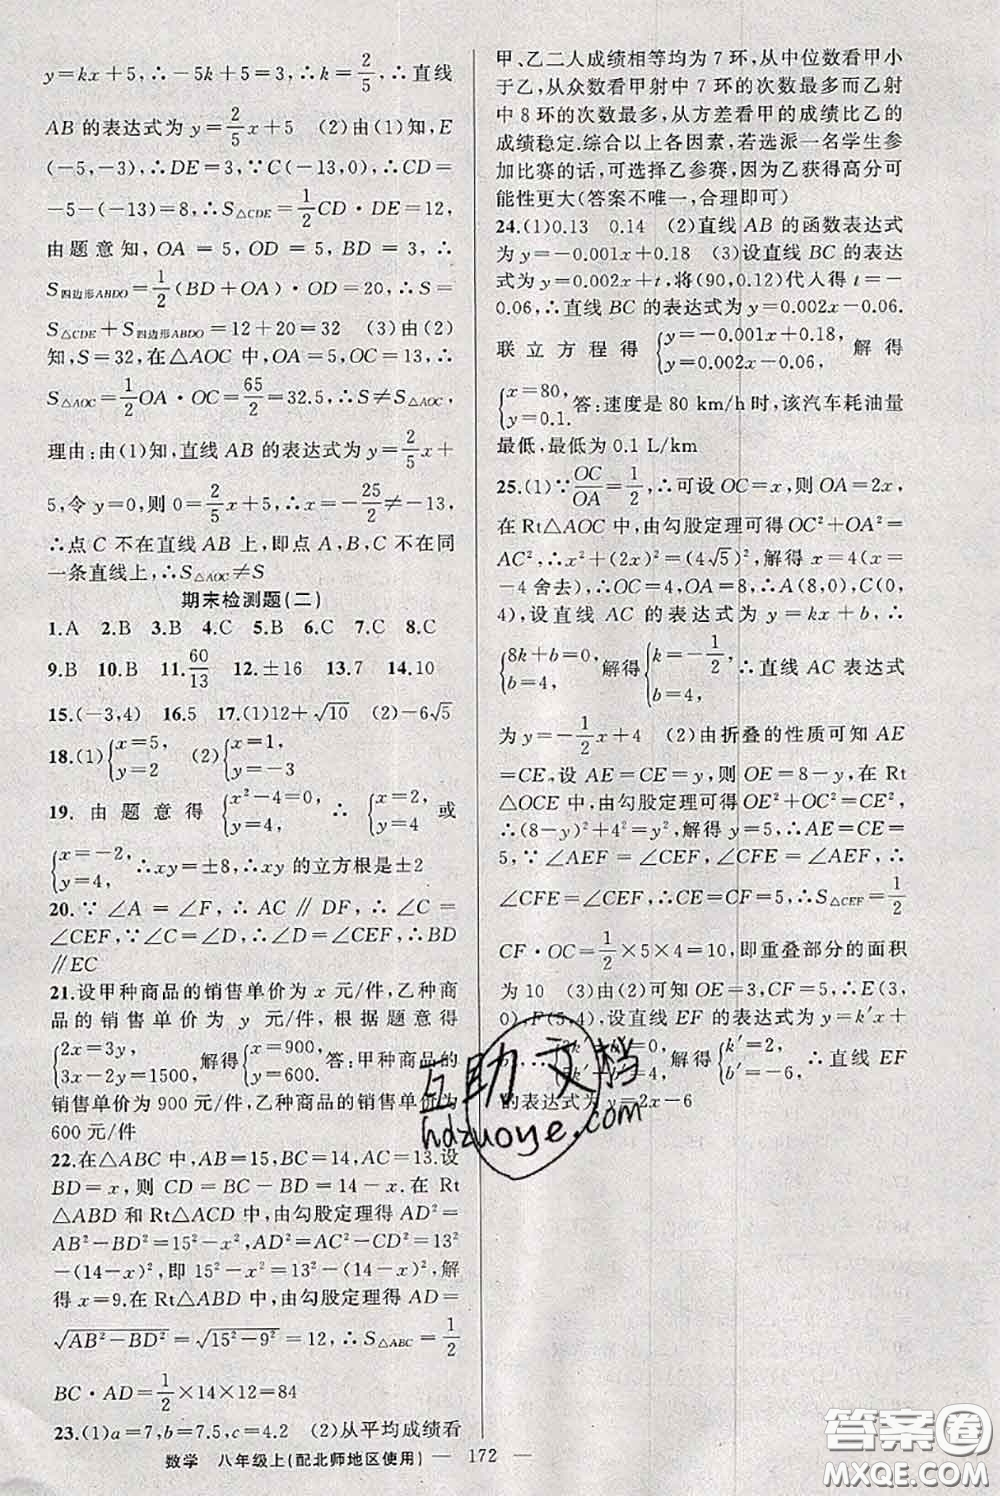 y=kx+5,∴-5k+5=3,∴k=2/5,∴直线
AB 的表达式为 y=2/5x+5 (2)由(1)知,E
(-5,-3),∴DE=3,∵C(-13,0),∴CD=
-5-(-13)=8,∴S△CDE=1/2CD·DE=12,
由题意知,OA=5,OD=5,BD=3,∴
S四边形ABDO=1/2(BD+OA)·OD=20,∴S=
S△CDE+S四边形ABDO=12+20=32 (3)由(2)
知,S=32,在△AOC 中,OA=5,OC=13,∴
S△AOC=1/2OA·OC=65/2=32.5,∴S≠S△AOC,
理由:由(1)知,直线 AB 的表达式为 y=2/5x+
5,令 y=0,则 0=2/5x+5,∴x=-25/2≠-13,
∴点 C 不在直线 AB 上,即点 A,B,C 不在同
一条直线上,∴S△AOC≠S
期末检测题(二)
1.A 2.B 3.B 4.C 5.B 6.C 7.B 8.C
9.B 10.B 11.60/13 12.±16 13.7 14.10
15.(-3,4) 16.5 17.(1)12+√10 (2)-6√5
18.(1){x=5, y=2 (2){x=1, y=-3
19.由题意得{x²-4=0, y=4, ∴{x=2, y=4,或
{x=-2, y=4, ∴xy=±8,∴xy 的立方根是±2
20.∵∠A=∠F,∴AC∥DF,∴∠C=
∠CEF,∵∠C=∠D,∴∠D=∠CEF,∴BD
∥EC
21.设甲种商品的销售单价为 x 元/件,乙种商
品的销售单价为 y 元/件,根据题意得
{2x=3y, 3x-2y=1500, 解得{x=900, y=600. 答:甲种商品的
销售单价为 900 元/件,乙种商品的销售单价为
600 元/件
22.在△ABC 中,AB=15,BC=14,AC=13.设
BD=x,则 CD=BC-BD=14-x.在 Rt
△ABD 和 Rt△ACD 中,由勾股定理得 AD²=
AB²-BD²=15²-x²,AD²=AC²-CD²=13²
-(14-x)²,即 15²-x²=13²-(14-x)²,解
得 x=9.在 Rt△ABD 中,由勾股定理得 AD=
√AB²-BD²=√15²-9²=12,∴S△ABC=1/2
BC·AD=1/2×14×12=84
23.(1)a=7,b=7.5,c=4.2 (2)从平均成绩看
甲、乙二人成绩相等均为 7 环,从中位数看甲小
于乙,从众数看甲射中 7 环的次数最多而乙射
中 8 环的次数最多,从方差看甲的成绩比乙的
成绩稳定.综合以上各因素,若选派一名学生参
加比赛的话,可选择乙参赛,因为乙获得高分可
能性更大(答案不唯一,合理即可)
24.(1)0.13 0.14 (2)直线 AB 的函数表达式
为 y=-0.001x+0.18 (3)设直线 BC 的表达
式为 y=0.002x+t,将(90,0.12)代入得 t=-
0.06,∴直线 BC 的表达式为 y=0.002x-0.06.
联立方程得{y=-0.001x+0.18, y=0.002x-0.06, 解得
{x=80, y=0.1. 答:速度是 80 km/h 时,该汽车耗油量
最低,最低为 0.1 L/km
25.(1)∵OC/OA=1/2,∴可设 OC=x,则 OA=2x,
在 Rt△AOC 中,由勾股定理可得 OC²+OA²=
AC²,∴x²+(2x)²=(4√5)²,解得 x=4(x=-
4 舍去),∴OC=4,OA=8,∴A(8,0),C(0,
4),设直线 AC 的表达式为 y=kx+b,∴
{8k+b=0, b=4, 解得{k=-1/2, b=4, ∴直线 AC 表达式
为 y=-1/2x+4 (2)由折叠的性质可知 AE
=CE,设 AE=CE=y,则 OE=8-y,在 Rt
△OCE 中,由勾股定理可得 OE²+OC²=CE²,
∴(8-y)²+4²=y²,解得 y=5,∴AE=CE=
5,∵∠AEF=∠CEF,∠CFE=∠AEF,∴
∠CFE=∠CEF,∴CE=CF=5,∴S△CEF=1/2
CF·OC=1/2×5×4=10,即重叠部分的面积
为 10 (3)由(2)可知 OE=3,CF=5,∴E(3,
0),F(5,4),设直线 EF 的表达式为 y=k′x+
解得{k′=2, b′=-6, ∴直线 EF
的表达式为 y=2x-6
互助文档
hdzuoye.com
数学 八年级上(配北师地区使用) — 172 —
答案圈
MXQE.COM